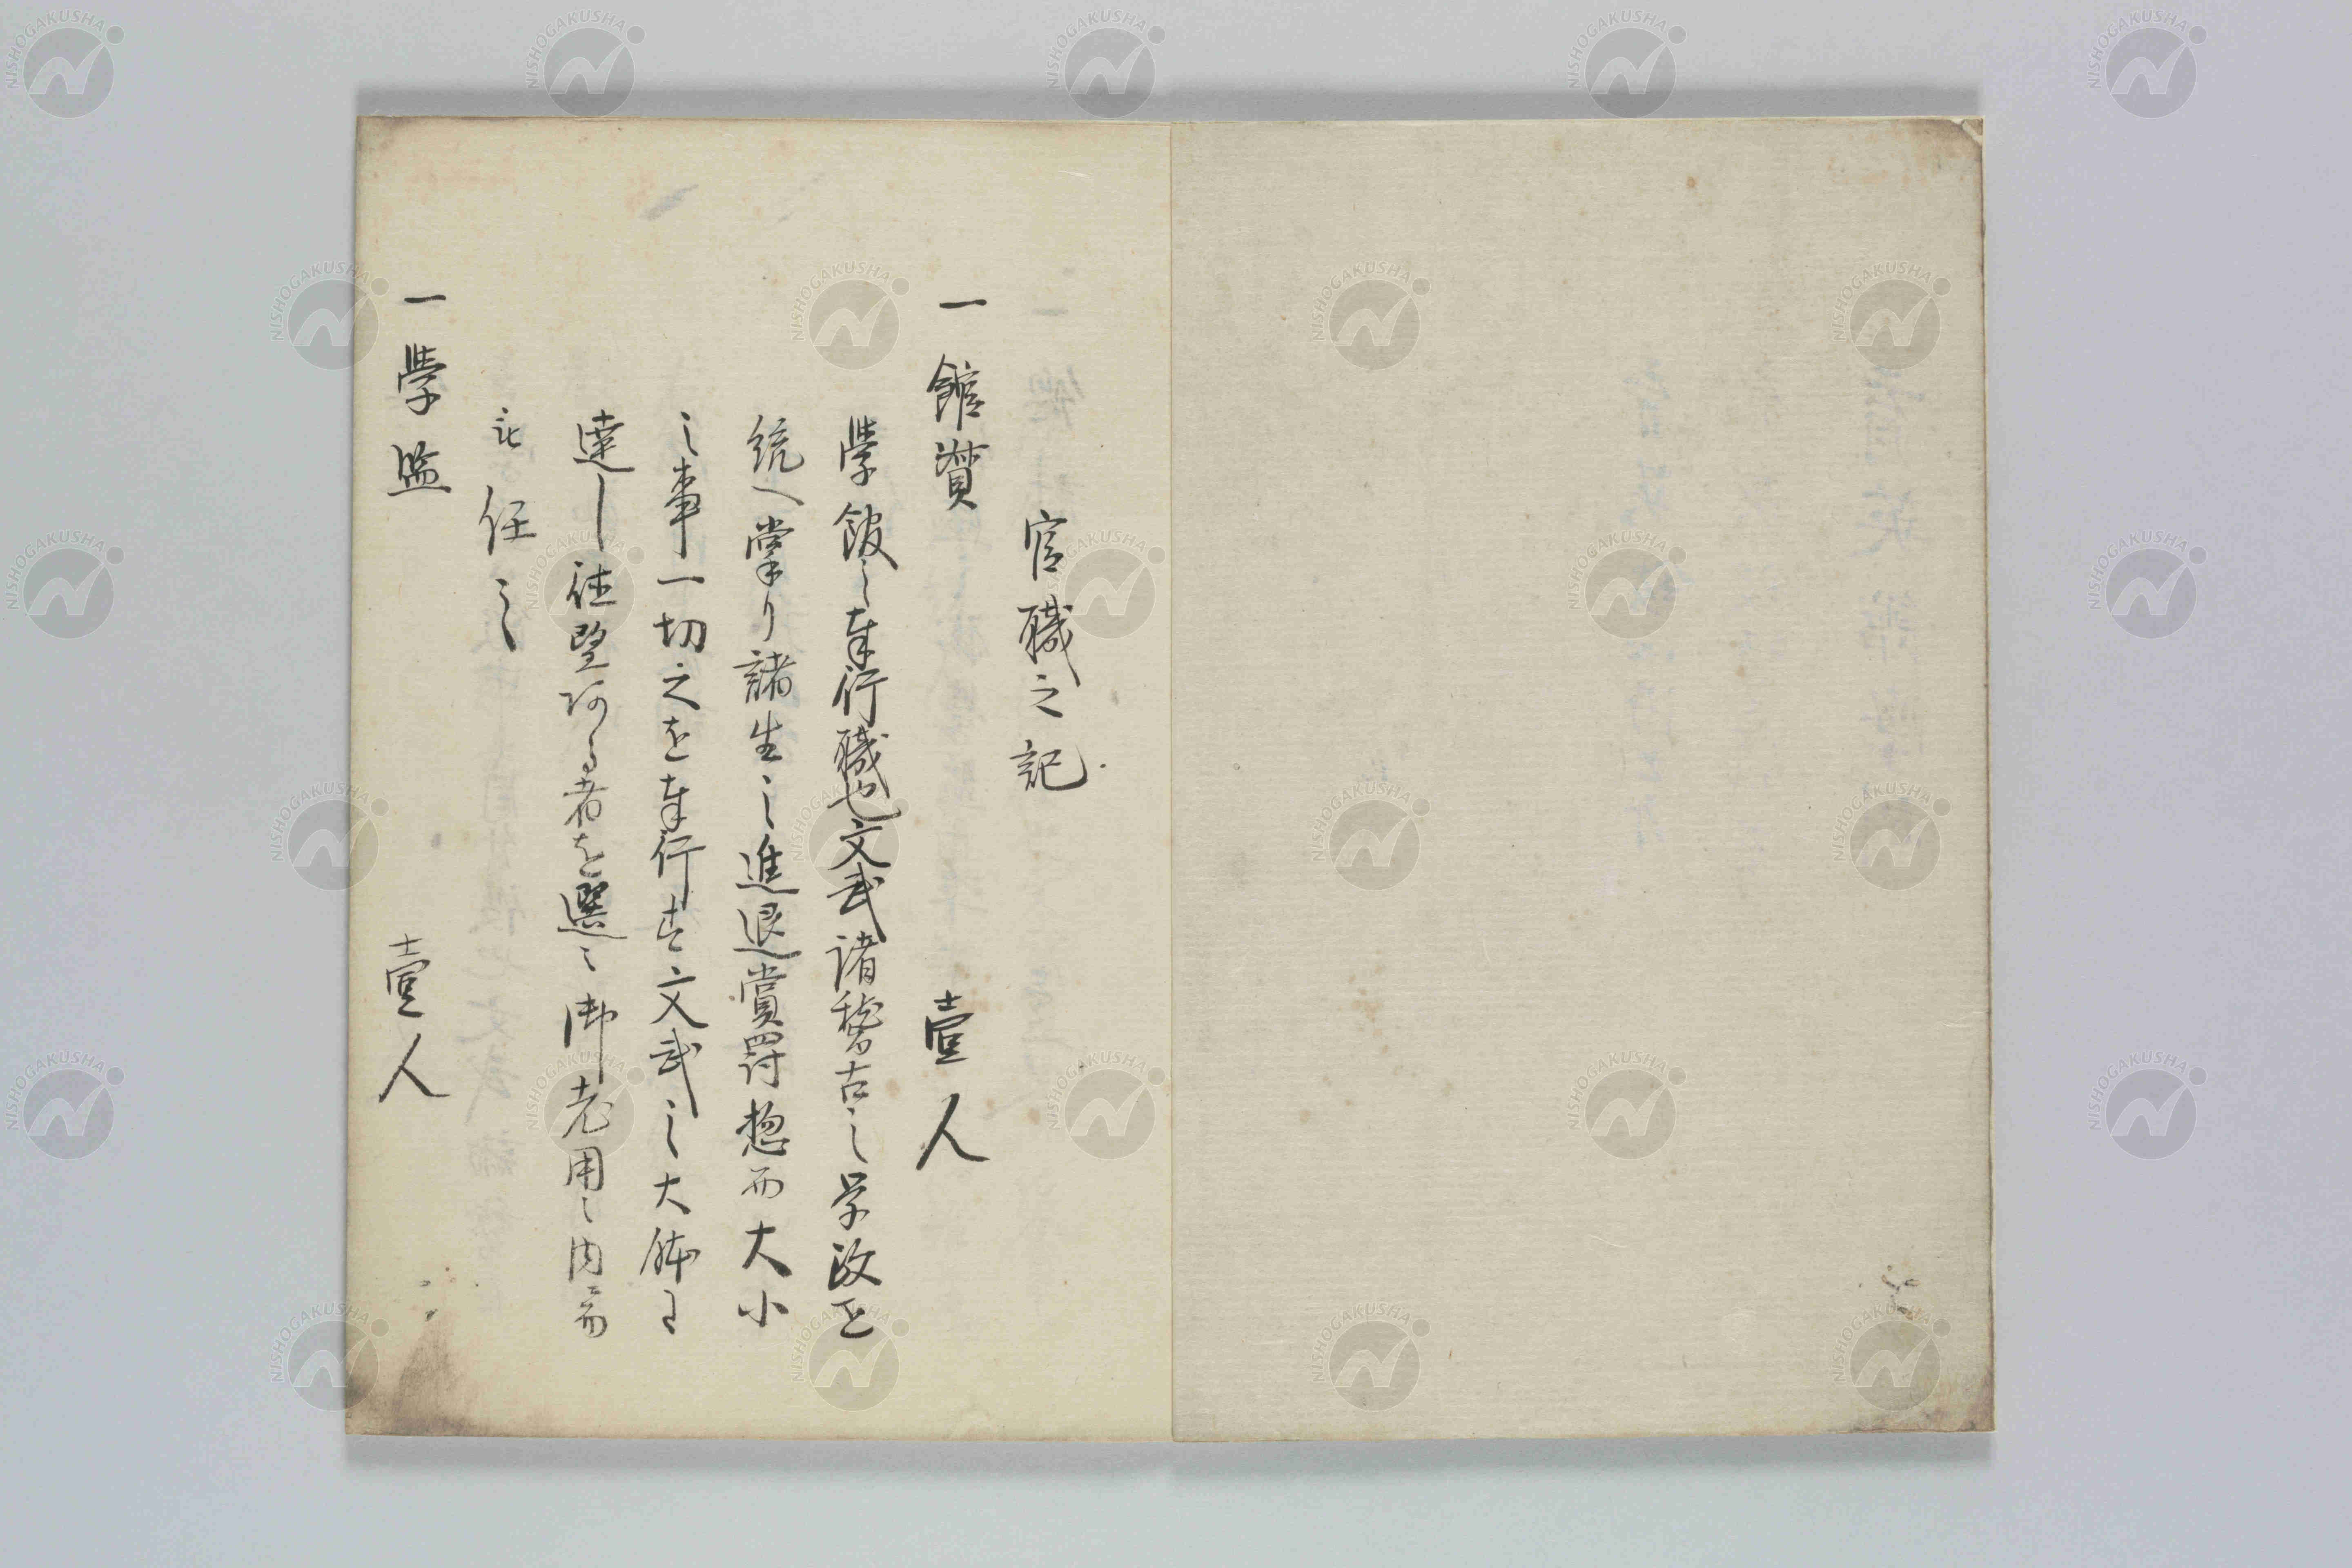 官職之記
一 館賛 壹人
學館之奉行職也文武諸稽古之学政を
統へ掌り諸生之進退賞罰惣而大小
之事一切之を奉行す文武之大体に
達し徳望ある者を選ミ御老用之内而
任之
一 學監 壹人
NISHOGAKUSHA